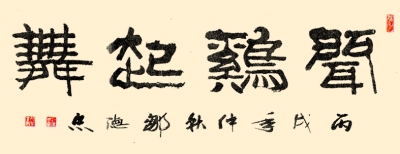 聞鷄起舞
丙戌年仲秋鄒德忠